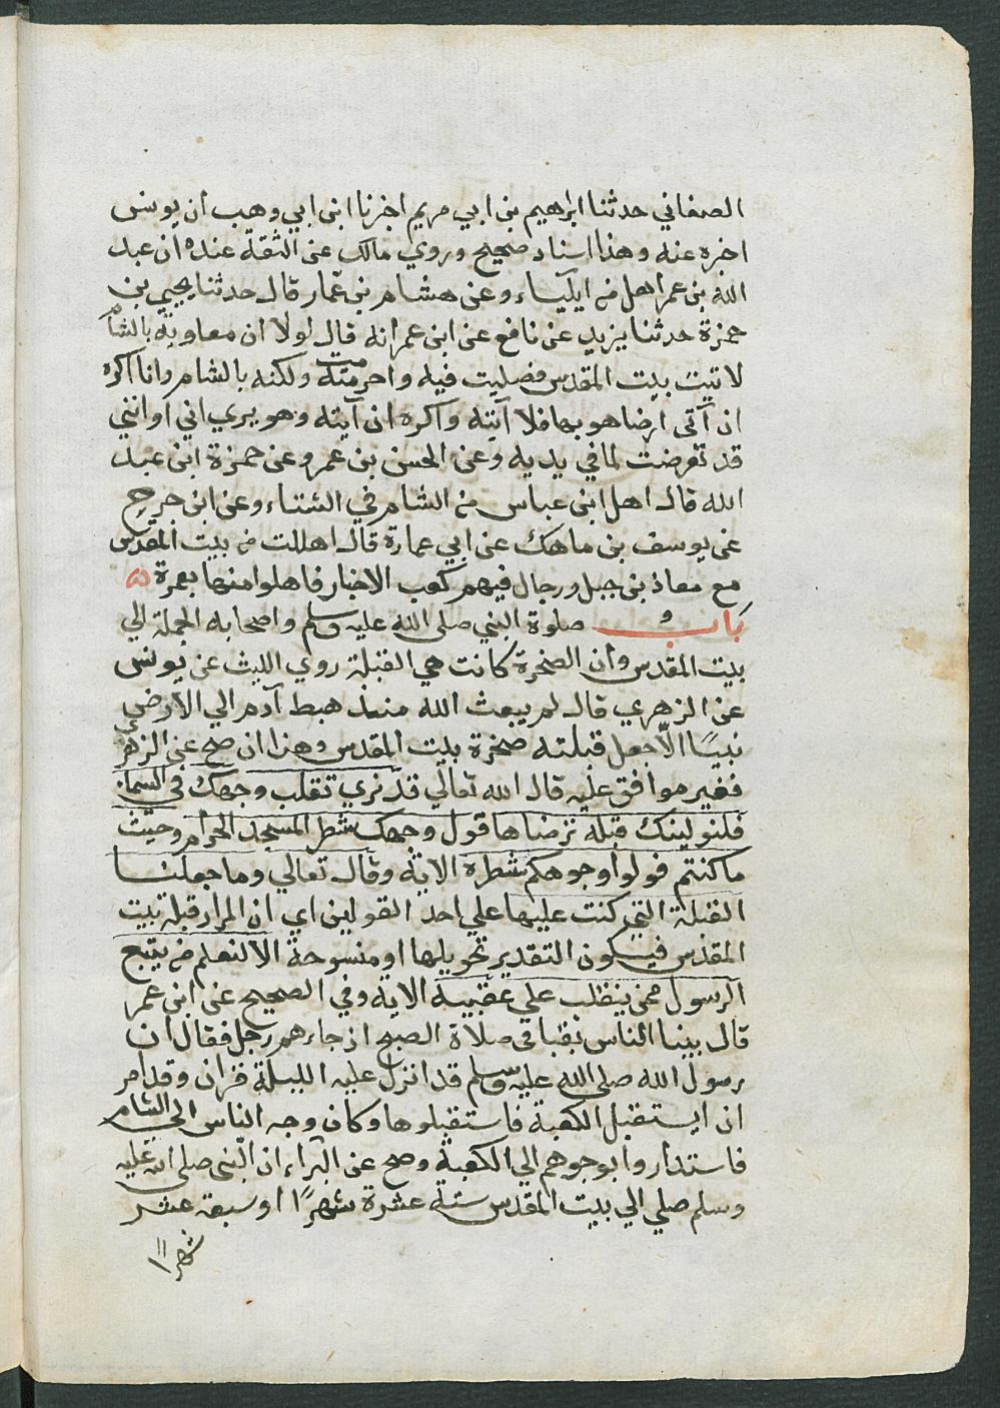 الصغاني حدثنا ابراهيم بن ابي مريم اخبرنا ابن ابي وهب ان يونس
اخبره عنه وهذا اسناد صحيح وروي مالك عن الثقة عنده ان عبد
الله بن عمر اهل من ايلياء وعن هشام بن عمار قال حدثنا يحيى بن
حمزة حدثنا يزيد عن نافع عن ابن عمر انه قال لولا ان معاوية بالشام
لاتيت بيت المقدس فصليت فيه واحرمت منه ولكنه بالشام وانا اكره
ان آتى ارضا هو بها فلا آتيه واكره ان آتيه وهو يرى اني او انني
قد تعرضت لما في يديه وعن الحسن بن عمرو عن حمزة ابن عبد
الله قال اهل ابن عباس من الشام في الشتاء وعن ابن جرج
عن يوسف بن ماهك عن ابي عمارة قال اهللت من بيت المقدس
مع معاذ بن جبل ورجال فيهم كعب الاخبار فاهلوا منها بعمرة ه
باب و صلوة النبي صلى الله عليه وسلم واصحابه الجملة الي
بيت المقدس وان الصخرة كانت هي القبلة روي الليث عن يونس
عن الزهري قال لم يبعث الله منذ هبط آدم الي الارض
نبيًا الّا جعل قبلته صخرة بيت المقدس وهذا ان صح عن الزهري
فغير موافق عليه قال الله تعالي قد نري تقلب وجهك في السماء
فلنولينك قبلة ترضاها فول وجهك شطر المسجد الحرام وحيث
ما كنتم فولوا وجوهكم شطره الاية وقال تعالي وما جعلنا
القبلة التي كنت عليها علي احد القولين اي ان المراد قبلة بيت
المقدس فيكون التقدير تحويلها او منسوخة الا لنعلم من يتبع
الرسول ممن ينقلب علي عقبيه الاية وفي الصحيح عن ابن عمر
قال بينا الناس بقبا في صلاة الصبح اذ جاءهم رجل فقال ان
رسول الله صلى الله عليه وسلم قد انزل عليه الليلة قران وقد امر
ان يستقبل الكعبة فاستقبلوها وكان وجه الناس الي الشام
فاستداروا بوجوههم الي الكعبة وصح عن البراء ان النبي صلى الله عليه
وسلم صلي الي بيت المقدس ستة عشرة شهرًا او سبعة عشر
شهرًا